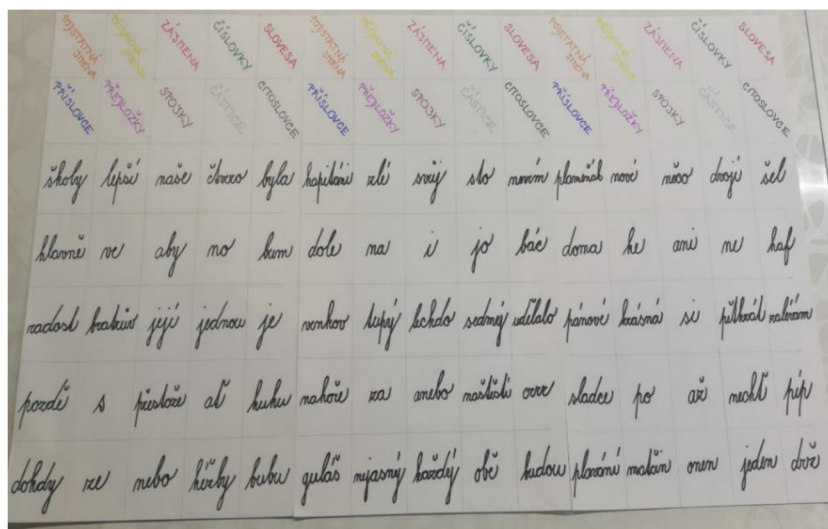 PODSTATNÁ JMÉNA PŘÍDAVNÁ JMÉNA ZÁJMENA ČÍSLOVKY SLOVESA PODSTATNÁ JMÉNA PŘÍDAVNÁ JMÉNA ZÁJMENA ČÍSLOVKY SLOVESA PODSTATNÁ JMÉNA PŘÍDAVNÁ JMÉNA ZÁJMENA ČÍSLOVKY SLOVESA
PŘÍSLOVCE PŘEDLOŽKY SPOJKY ČÁSTICE CITOSLOVCE PŘÍSLOVCE PŘEDLOŽKY SPOJKY ČÁSTICE CITOSLOVCE PŘÍSLOVCE PŘEDLOŽKY SPOJKY ČÁSTICE CITOSLOVCE
školy lepší naše čtvero byla kapitáni zlé svůj sto nevím plameňák nové něco dvojí šel
hlavně ve aby no bum dole na i jo bác doma ke ani ne haf
radost bratrův její jednou je venkov tupý sedmý udělalo pánové krásná si pětkrát zalévám
pozdě s přestože ať kuku nahoře za anebo naštěstí crrr sladce po až nechť píp
ze nebo kéžby bubu guláš nejasný každý obě budou plavání matčin onen jeden drží